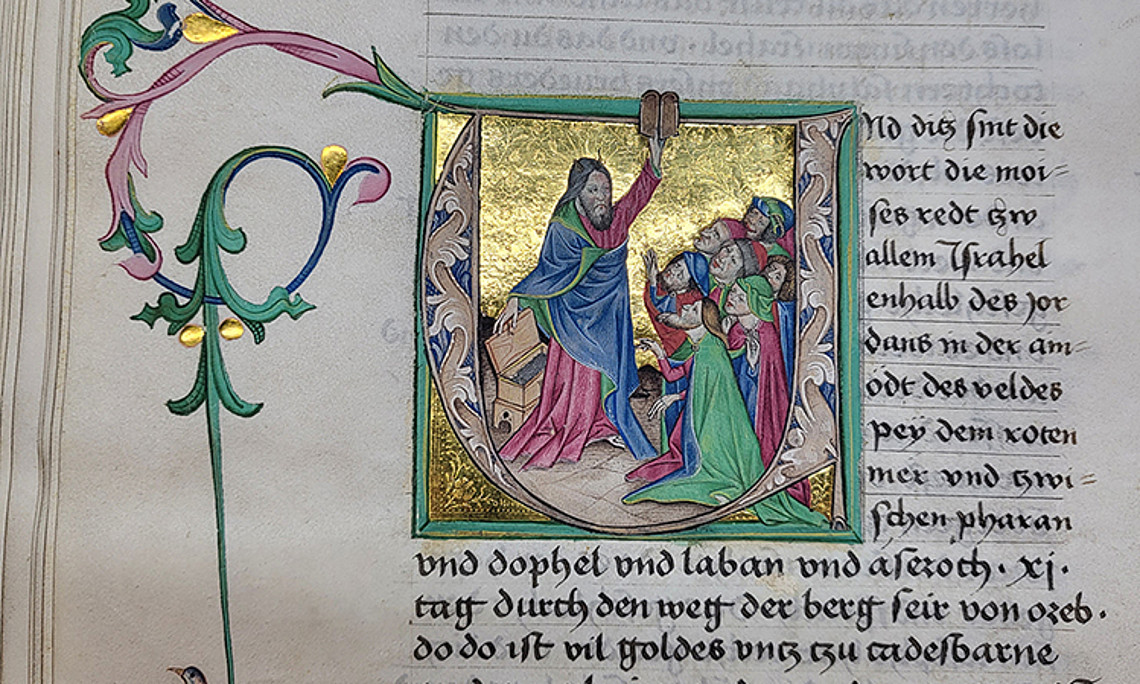 Nd ditz sint die
wort die moi=
ses redt tzw
allem Israhel
enhalb des Jor
dans in der am=
odt des veldes
pey dem roten
mer vnd tzwi=
schen pharan
vnd dophel vnd laban vnd aseroth · xj ·
tag durch den weg der berg seir von ozeb ·
do do ist vil goldes vntz tzu cadesbarne